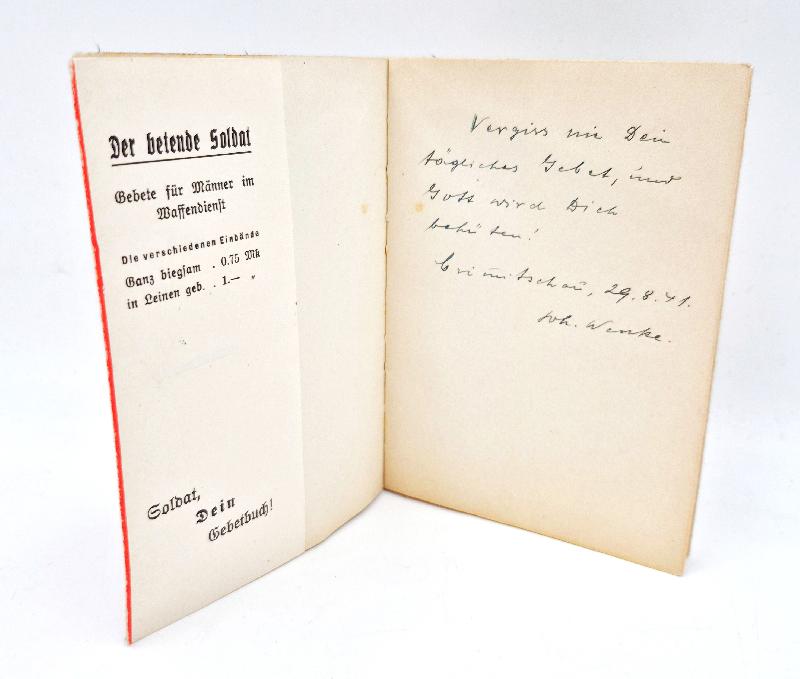 Der betende Soldat
Gebete für Männer im
Waffendienst
Die verschiedenen Einbände
Ganz biegsam . 0.75 Mk
in Leinen geb. . 1.— „
Soldat,
Dein
Gebetbuch!
Vergiss nie Dein
tägliches Gebet, und
Gott wird Dich
behüten!
Crimmitschau, 29.8.41.
Joh. Wenke.